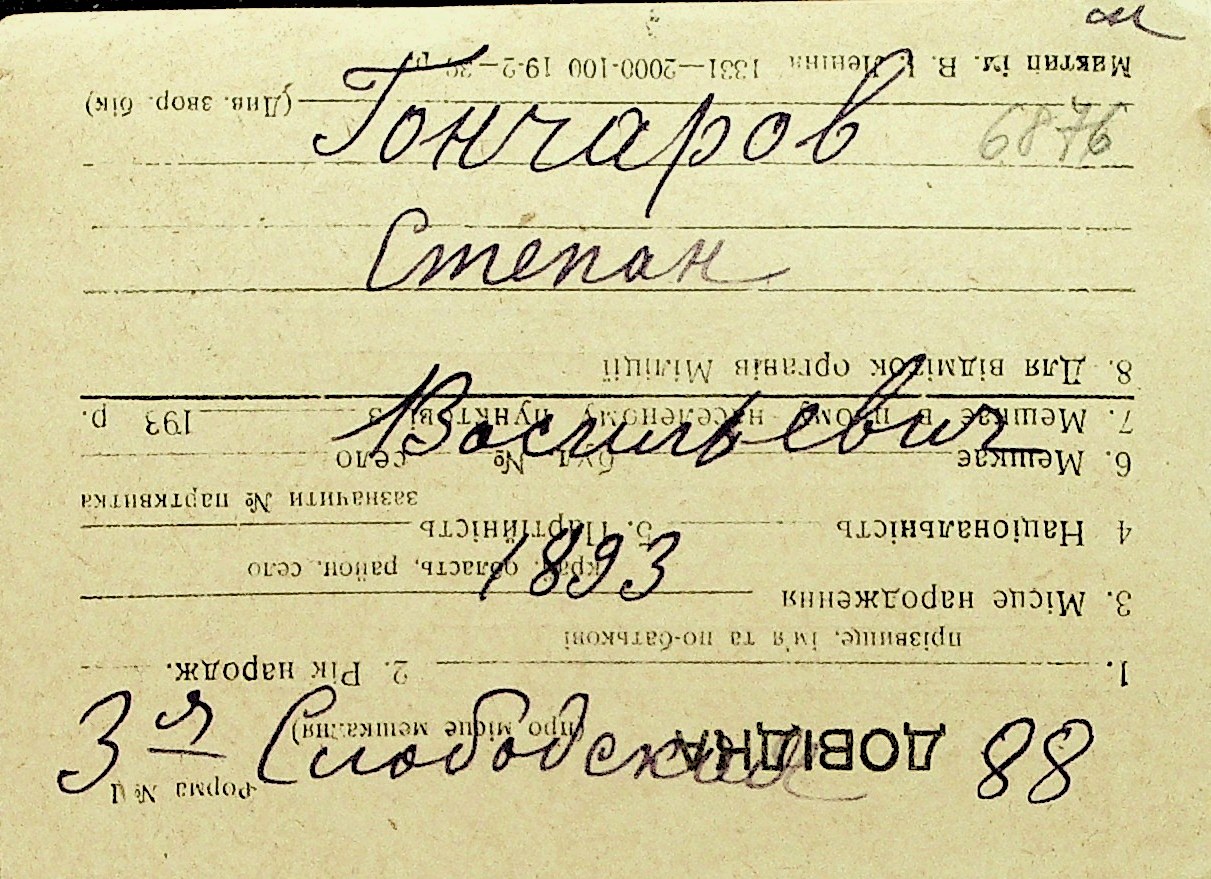 м
Гончаров
6876
Степан
Васильевич
1893
3я Слободская 88
Форма № 1
ДОВІДКА
(про місце мешкання)
1. 2. Рік народж.
прізвище, ім'я та по-батькові
3. Місце народження
край, область, район, село
4 Національність 5. Партійність
зазначити № партквитка
6. Мешкає вул. № село
7. Мешкає в цьому населеному пунктові з 193 р.
8. Для відміток органів Міліції
(Див. звор. бік)
ім. В. І. Леніна 1331—2000-100 19-2—39 р.